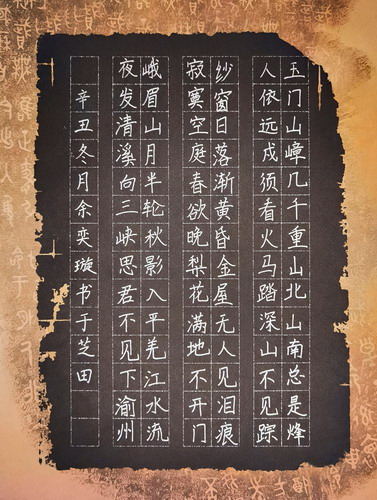 玉门山嶂几千重山北山南总是烽
人依远戍须看火马踏深山不见踪
纱窗日落渐黄昏金屋无人见泪痕
寂寞空庭春欲晚梨花满地不开门
峨眉山月半轮秋影入平羌江水流
夜发清溪向三峡思君不见下渝州
辛丑冬月余奕璇书于芝田